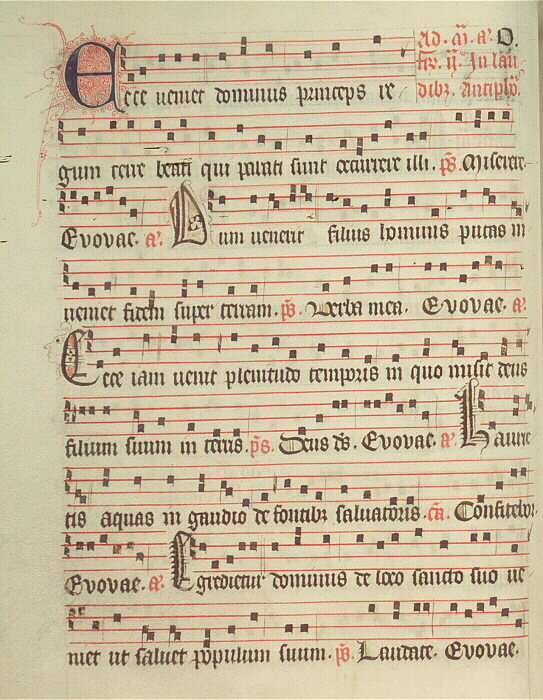 Ad. a. O.
fer. ij. In lau
Ecce veniet dominus princeps re
dib. Antiph.
gum terre beati qui parati sunt occurrere illi. ps. Miserere.
Evovae. a. Dum venerit filius hominis putas in
veniet fidem super terram. ps. Verba mea. Evovae. a.
Ecce iam venit plenitudo temporis in quo misit deus
filium suum in terris. ps. Deus ds. Evovae. a. Haurie
tis aquas in gaudio de fontibz salvatoris. ca. Confitebor
Evovae. a. Egredietur dominus de loco sancto suo ve
niet ut salvet populum suum. ps. Laudate. Evovae.